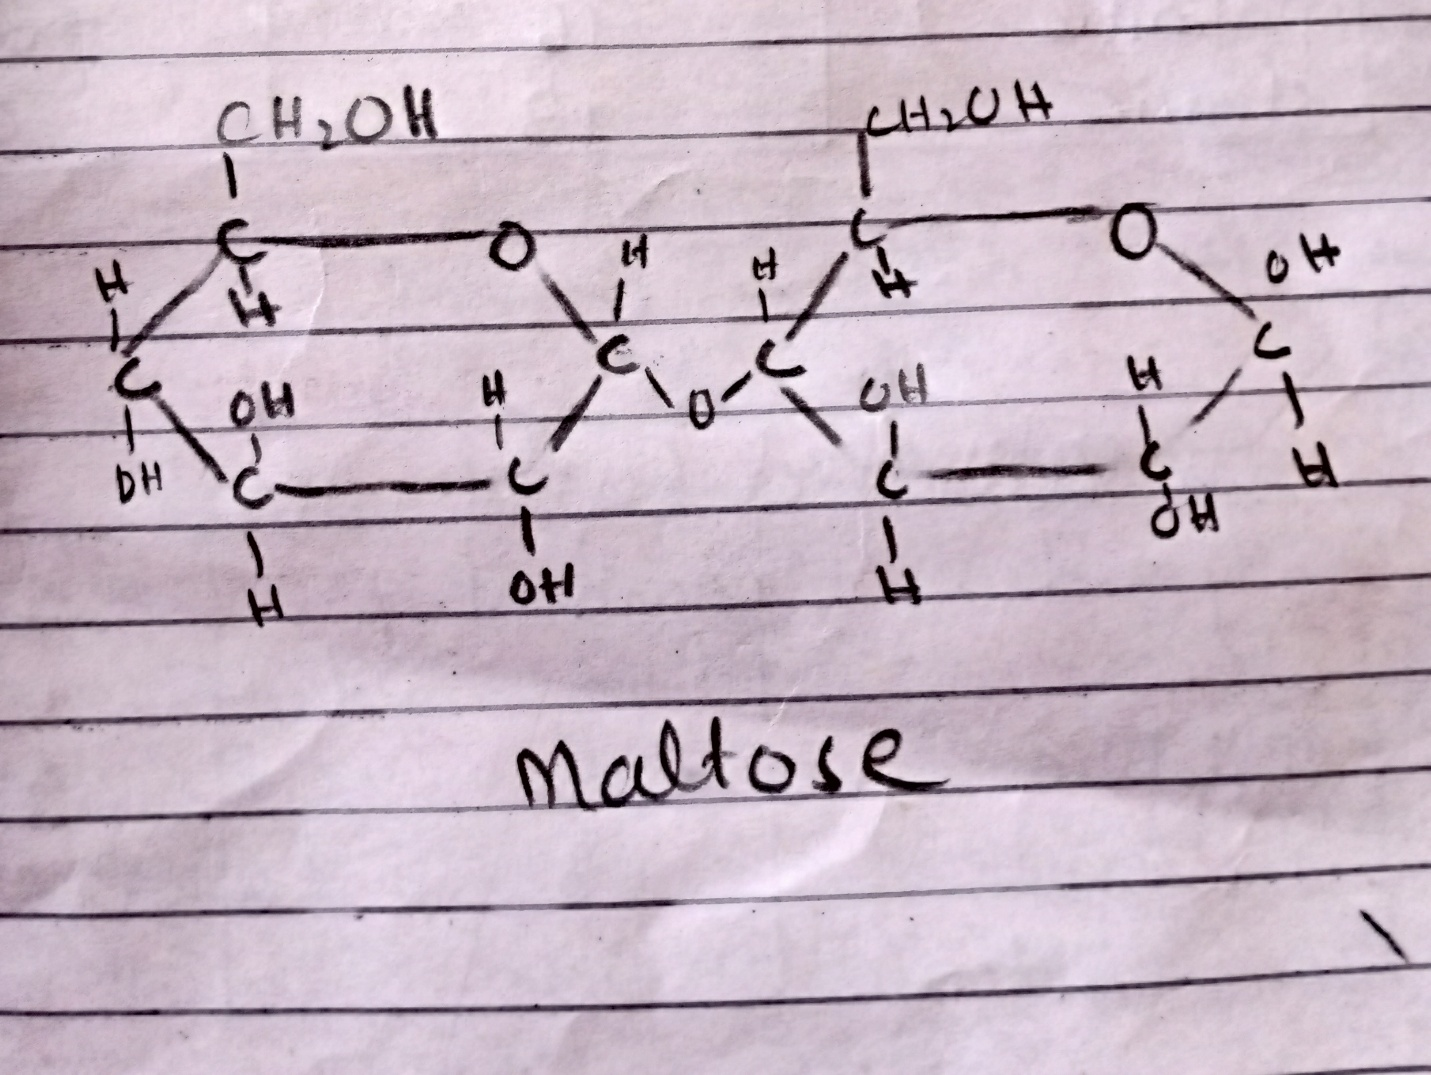 CH₂OH CH₂OH
C O H H C O OH
H H C C H C
C OH H O OH H
OH C C C C H
H OH H OH
Maltose